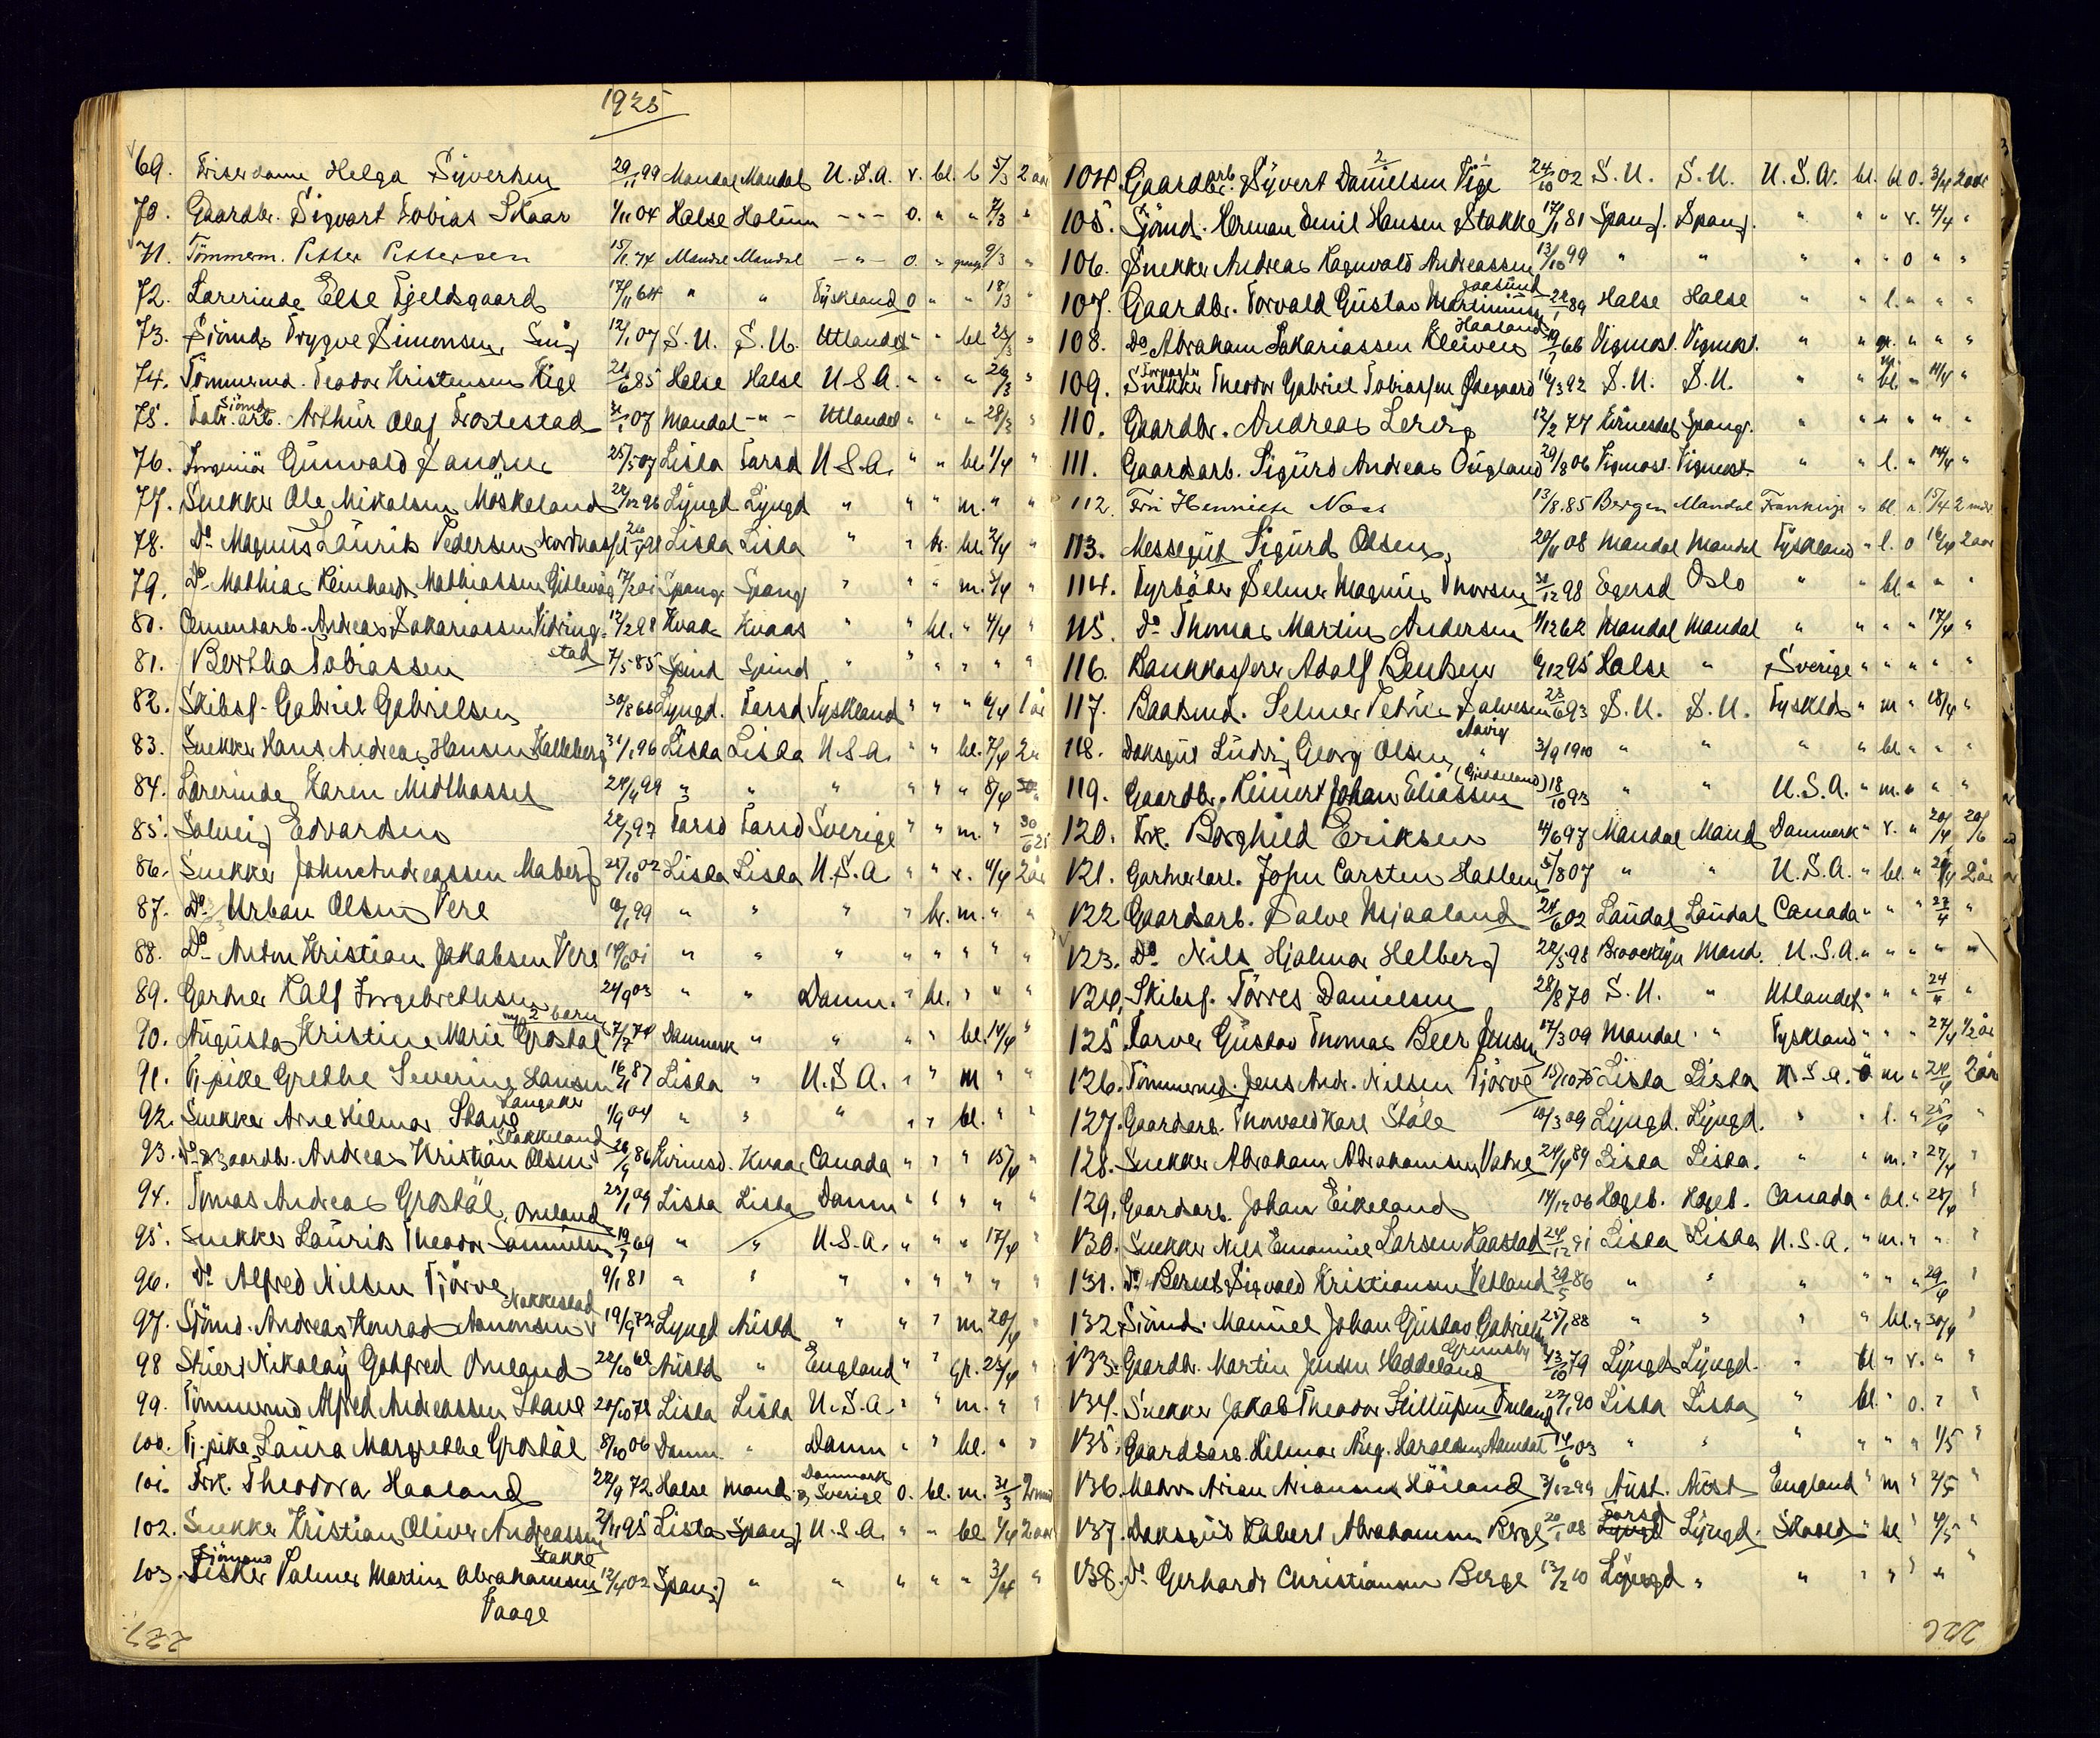 1925
69. Friserdame Helga Syvertsen 29/11 99 Mandal Mandal U.S.A. v. bl. b 5/3 2 aar
70. Gaardbr. Sigvart Tobias Skaar 1/11 04 Halse Halse -"- o. " " 7/3 "
71. Tømmerm. Petter Pettersen 15/1 74 Mandal Mandal -"- o. " 9/3 "
72. Lærerinde Else Fjeldsgaard 17/11 64 " " Tyskland o " " 18/3 "
73. Sjömd Trygve Simonsen 12/1 07 S.U. S.U. Utlandet " " bl 25/3 "
74. Tømmermd. Teodor Kristensen Vige 21/6 85 Halse Halse U.S.A. " " " 26/3 "
75. Fabr. arb. Sjömd Arthur Olaf Trostestad 31/1 07 Mandal -"- Utlandet " " " 28/3 "
76. Ingeniör Gunvald 25/5 07 Lista Farsd U.S.A. " " bl 1/4 "
77. Snekker Ole Mikalsen Möskeland 28/12 96 Lyngd Lyngd " " " m. " "
78. Do Magnus Laurits Pedersen Lista Lista " " br. bl. 2/4 "
79. Do Mathias Reinhart Mathiassen Gitlevåg 17/2 01 Spang. Spang " " " m. 3/4 "
80. Cementarb. Andreas Zakariassen Vidringstad 12/2 98 Kvaas Kvaas " " bl. " 4/4 "
81. Bertha Tobiassen 7/5 85 Spind Spind " " " " " "
82. Skibsf. Gabriel Gabrielsen 30/8 66 Lyngd. Farsd Tyskland " " " 6/4 1 år
83. Snekker Hans Andreas Hansen Kalleberg 31/1 96 Lista Lista U.S.A. " " bl. 7/4 2 "
84. Lærerinde Karen Midthassel 24/4 99 " " " " " " 8/4 "
85. Solveig Edvardsen 22/7 97 Farsd Farsd Sverige " " m. " 30/6 25
86. Snekker Johan Andreassen Maberg 25/10 02 Lista Lista U.S.A. " " v. 4/4 2 år
87. Do Urban Olsen Vere 10/1 99 " " " " br. m. " "
88. Do Anton Kristian Jakobsen Vere 19/6 01 " " " " " " " "
89. Gartner Ralf Ingebrethsen 24/9 03 " " Danm. " bl. " " "
90. Augusta Kristine Marie Grostøl m/ 2 barn 7/7 74 Danmark " " " " bl. 14/4 "
91. Tj.pike Grethe Severine Hansen 16/11 87 Lista " U.S.A. " " m " "
92. Snekker Arne Hilmar Stave Langaker 1/9 04 " " " " " bl. " "
93. Gaardbr. Andreas Kristian Olsen Stakkeland 26/9 86 Kvinesd. Kvaas Canada " " " 15/4 "
94. Tomas Andreas Grostøl 23/1 09 Lista Lista Danm " " " " "
95. Snekker Laurits Theodor Samuelsen Omland 19/7 69 " " U.S.A. " " " 17/4 "
96. Do Alfred Nilsen Tjörve 9/1 81 " " " " " " " "
97. Sjömd. Andreas Konrad Aanonsen Nakkestad 19/9 72 Lyngd Austd " " " m. 20/4 "
98 Stuert Nikolay Gotfred Omland 22/10 62 Austd " England " " gr. 23/4 "
99. Tømmermd Alfred Andreassen Stave 20/10 78 Lista Lista U.S.A. " " m. " "
100. Tj.pike Laura Margrethe Grostøl 8/10 06 Danm. " Danm " " bl. " "
101. Frk. Theodora Haaland 22/9 72 Halse Mand. Danmark & Sverige o. bl. m. 31/3 2 mnd
102. Snekker Kristian Oliver Andreassen Stakke 2/11 95 Lista Spang. U.S.A. " " bl. 1/4 2 aar
103. Fisker Sjömand Palmer Martin Abrahamsen Vaage 12/4 02 Spang " " " " " 3/4 "
227
104. Gaardbr. arb. Syvert Danielsen Vige 24/10 02 S.U. S.U. U.S.A. bl. bl o. 3/4 2 aar
105. Sjömd. Herman Emil Hansen Stakke 17/1 81 Spang. Spang. " " " v. 4/4 "
106. Snekker Andreas Ragnvald Andreassen 13/10 99 " " " " " o " "
107. Gaardbr. Torvald Gustav Martinius Jaasund 22/1 89 Halse Halse " " l. " " "
108. Do Abraham Zakariassen Kleiven Haaland 66 Vigmost. Vigmost. " " gr. " " "
109. Snekker Theodor Gabriel Tobiassen Ødegaard 16/3 92 S.U. S.U. " " bl. " 14/4 "
110. Gaardbr. Andreas Lervig 12/2 77 Kvinesdal Spangr. " " " " " "
111. Gaardarb. Sigurd Andreas Ougland 29/8 06 Vigmost. Vigmost. " " l. " 14/4 "
112. Fru Henriette Næss 13/8 85 Bergen Mandal Frankrige " bl. " 15/4 2 mdr
113. Messegut Sigurd Olsen 20/11 08 Mandal Mandal Tyskland " l. o 16/4 2 aar
114. Fyrböter Selmer Magnus Thorsen 31/12 98 Egersd Oslo " " bl " " "
115. Do Thomas Martin Andersen 4/12 62 Mandal Mandal " " " " 17/4 "
116. Bankkasserer Adolf Bentsen 9/12 95 Halse " Sverige " " " " "
117. Baatsmd. Selmer Petrus Salvesen Aavig 23/6 93 S.U. S.U. Tysklds " m " 18/4 "
118. Dæksgut Ludvig Georg Olsen 3/9 1910 " " " " bl. " " "
119. Gaardbr. Reinert Johan Eliassen (Gjeddeland) 18/10 93 " " U.S.A. " m. " " "
120. Frk. Borghild Eriksen 4/6 97 Mandal Mand Danmark " v. " 20/4 20/6
121. Gartnerlærl. John Carsten Hatlem 5/8 07 " " U.S.A. " bl. " 21/4 2 år
122 Gaardsarb. Salve Mjaaland 24/6 02 Laudal Laudal Canada " " " 22/4 "
123. Do Nils Hjalmar Helberg 22/5 98 Broocklyn Mand. U.S.A. " " " " "
124. Skibsf. Törres Danielsen 28/8 70 S.U. " Utlandet " " " 24/4 "
125. Farver Gustav Thomas Beer Jensen 17/3 09 Mandal " Tyskland " " " 27/4 1/2 år
126. Tømmermd. Jens Andr. Nilsen Tjörve 15/10 75 Lista Lista U.S.A. " m " 24/4 2 år
127. Gaardarb. Thorvald Karl Ståle 10/3 09 Lyngd. Lyngd. " " l. " 25/4 "
128. Snekker Abraham Abrahamsen Vatne 24/4 89 Lista Lista. " " m. " 27/4 "
129. Gaardsarb. Johan Eikeland 14/12 06 Hægeb. Hægeb. Canada " bl. " 28/4 "
130. Snekker Nils Emanuel Larsen Haastad 24/12 91 Lista Lista U.S.A. " m. " " "
131. Do Bernt Sigvald Kristiansen Vetland 29/5 86 " " " " " " 29/4 "
132. Sjömd. Manuel Johan Gustav Gabrielsen Grimsby 25/1 88 " " " " bl. " 30/4 "
133. Gaardbr. Martin Jensen Haddeland 13/10 79 Lyngd Lyngd. " bl " v. " "
134. Snekker Jakob Theodor Omland 27/1 90 Lista Lista " bl. " o. " "
135. Gaardsarb. Hilmar Aug. Haraldsen Aamdal 14/6 03 " " " " " " 1/5 "
136. Arian Ariansen Höiland 3/12 99 Aust. Aust England " m " 2/5 "
137. Dæksgut Labert Abrahamsen Berge 20/1 08 Lyngd Farsd Lyngd. Skotld " bl " 4/5 "
138. Do Gerhard Christiansen Berge 13/2 10 Lyngd " " " " " " "
226